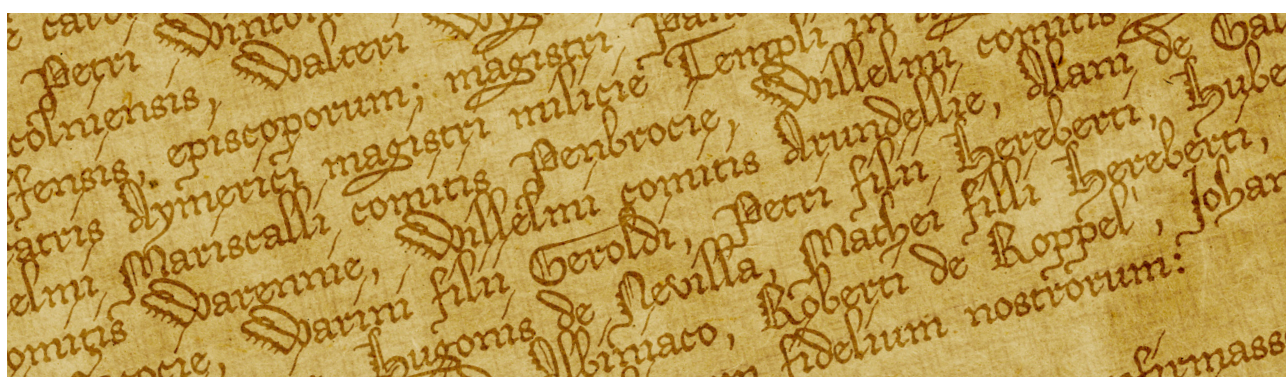 Petri
colniensis, Walteri
ffensis, episcoporum; magistri
atris Aymerici magistri milicie Templi in
elmi Mariscalli comitis Penbrocie, Willelmi comitis
omitis Warennie, Willelmi comitis Arundellie, Alani de Gal
ocie, Warini filii Geroldi, Petri filii Hereberti, Hube
Hugonis de Nevilla, Mathei filli Hereberti,
Albiniaco, Roberti de Roppel', Johan
fidelium nostrorum:
firmass